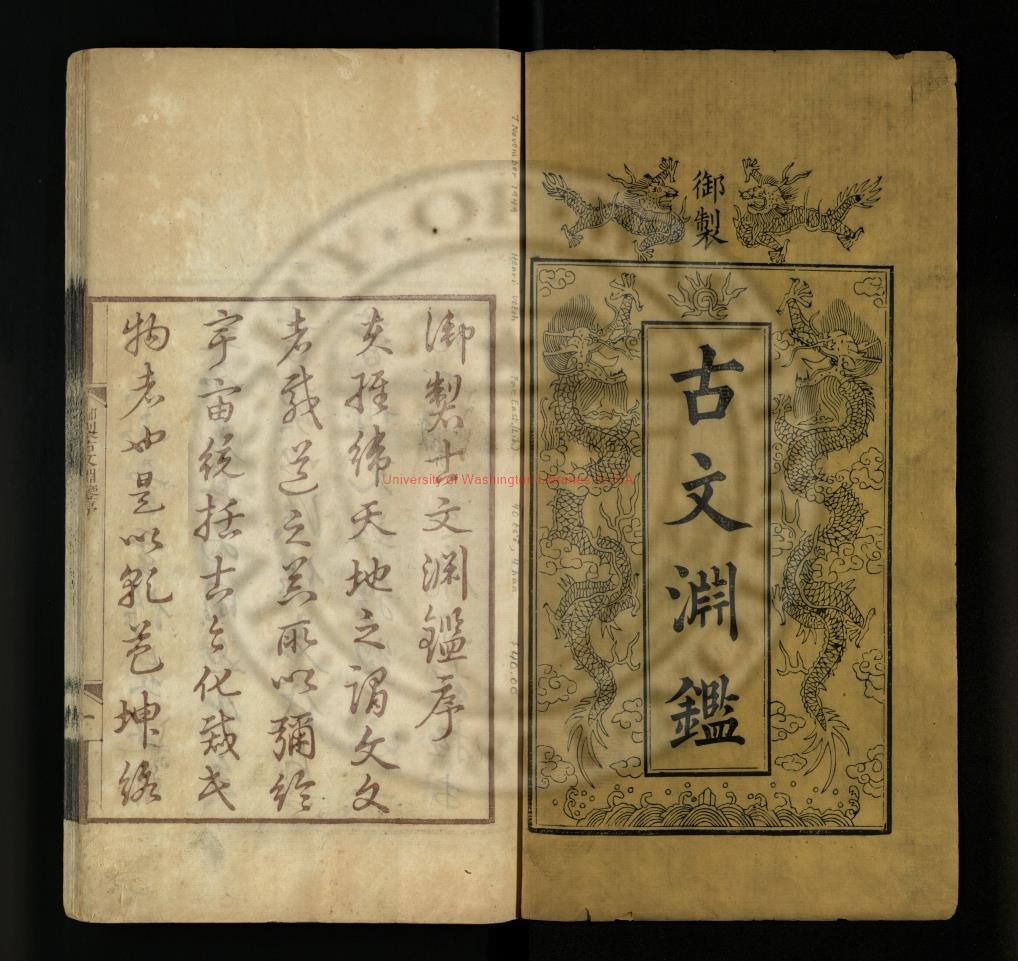 御製
古文淵鑑
御製古文淵鑑序
夫經緯天地之謂文文
者載道之器所以彌綸
宇宙統括古今化裁民
物者也是以乾苞坤絡
御製古文淵鑒序
7 November 1944
Henri Vetch
$40.00
University of Washington Libraries, U.S.A.